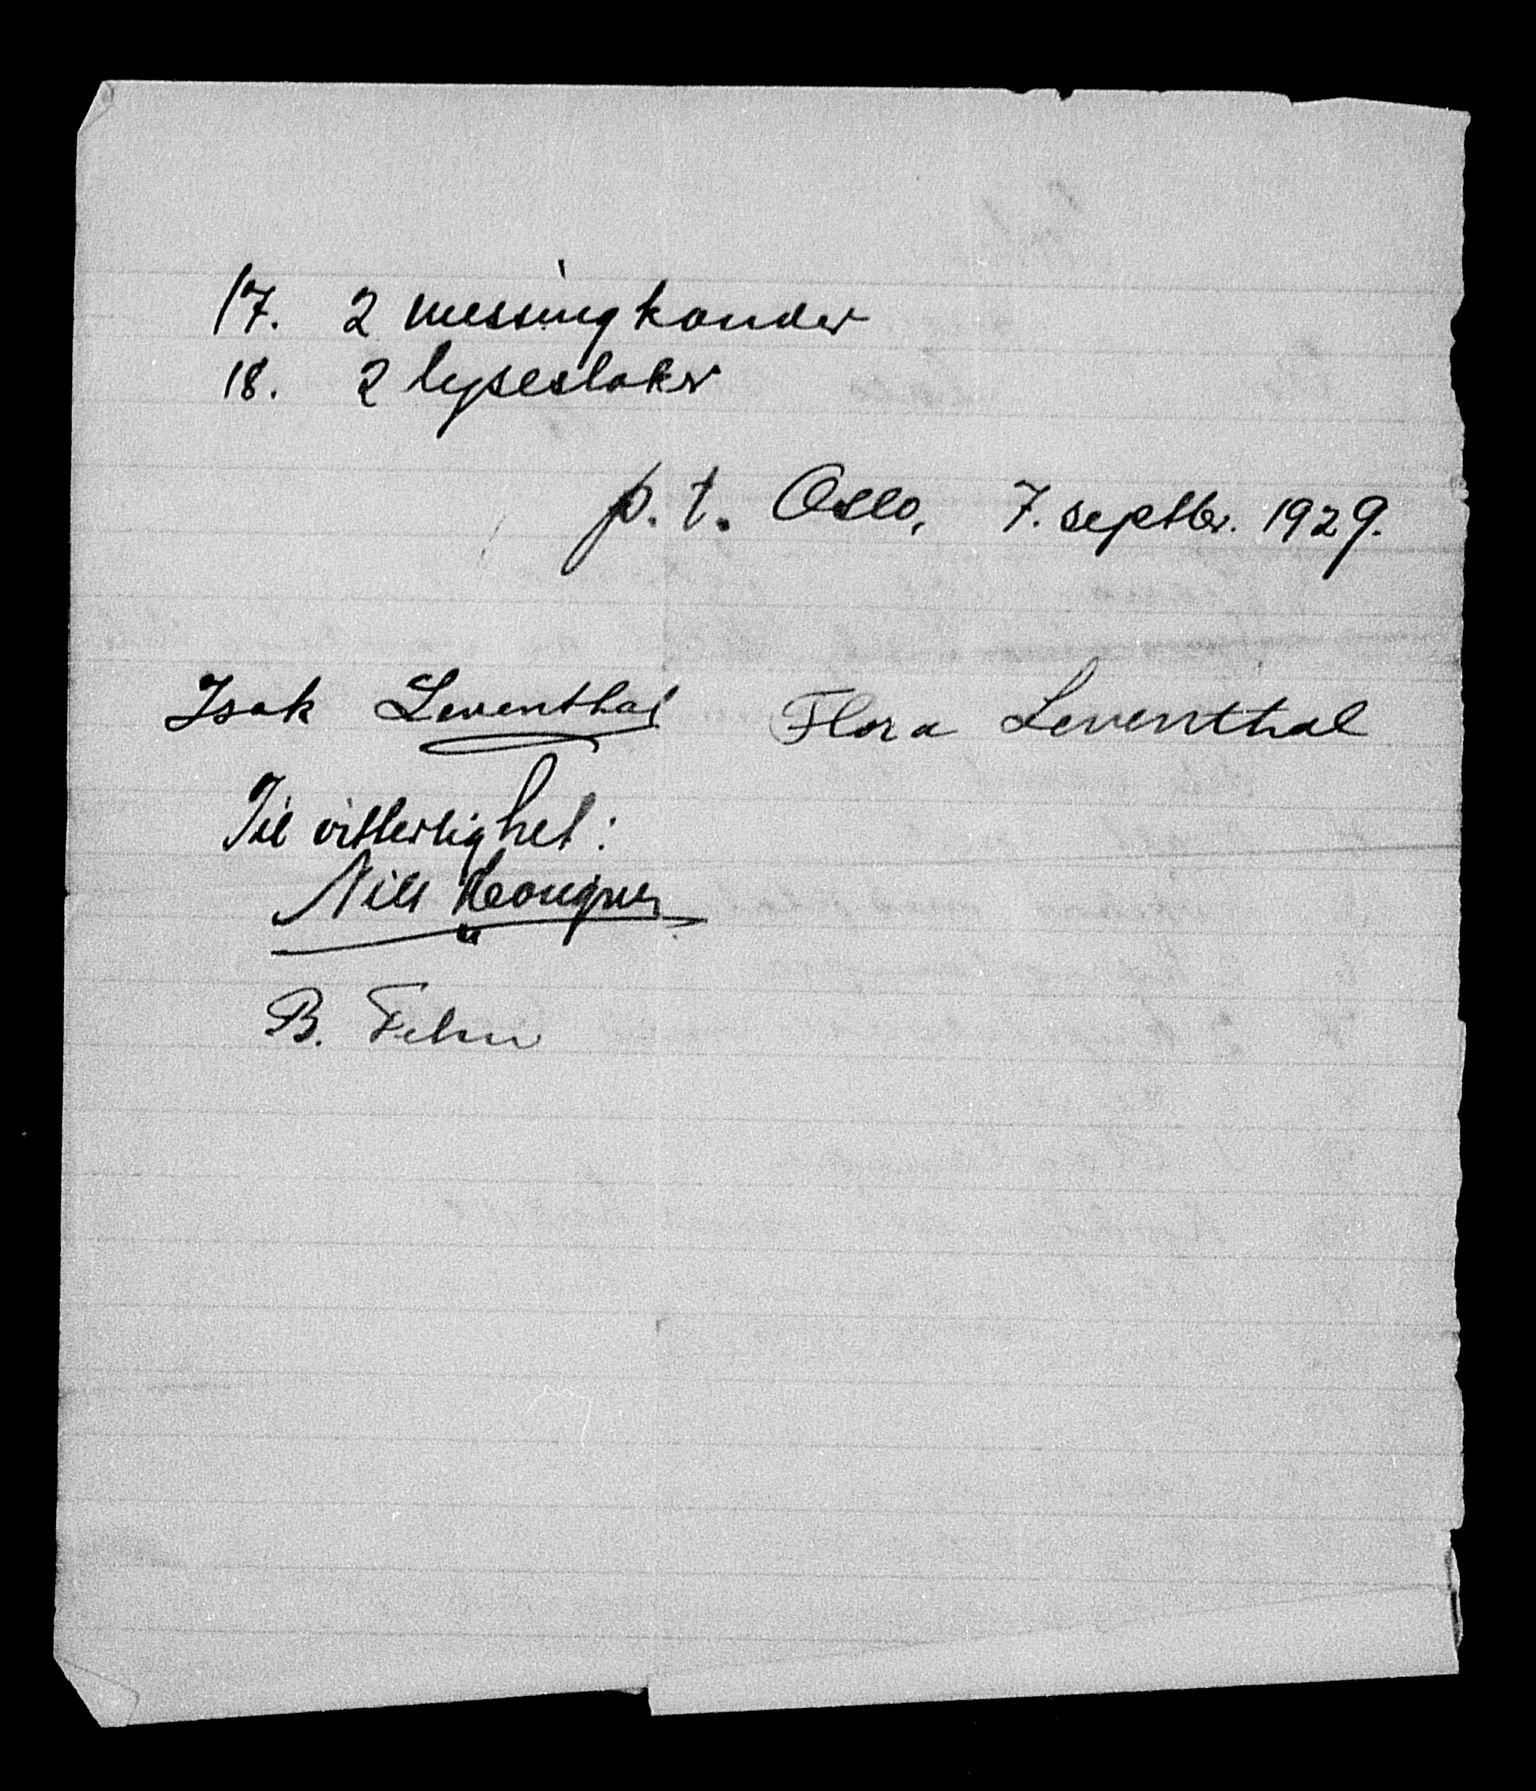 17. 2 messingkander
18. 2 lysestaker
p.t. Oslo, 7. septbr. 1929.
Isak Leventhal Flora Leventhal
Til vitterlighet:
Nils
B. Fehn